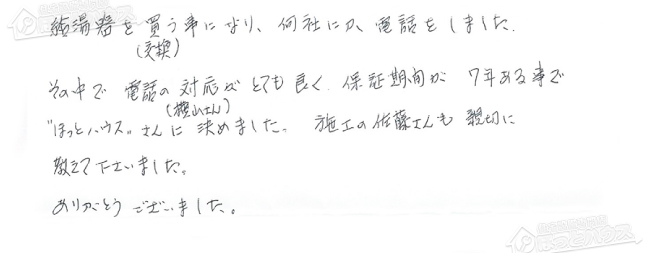 給湯器を買う事になり、何社にか、電話をしました。
(交換)
その中で電話の対応がとても良く、保証期間が7年ある事で
(横山さん)
"ほっとハウス"さんに決めました。施工の佐藤さんも親切に
教えて下さいました。
ありがとうございました。
ほっとハウス